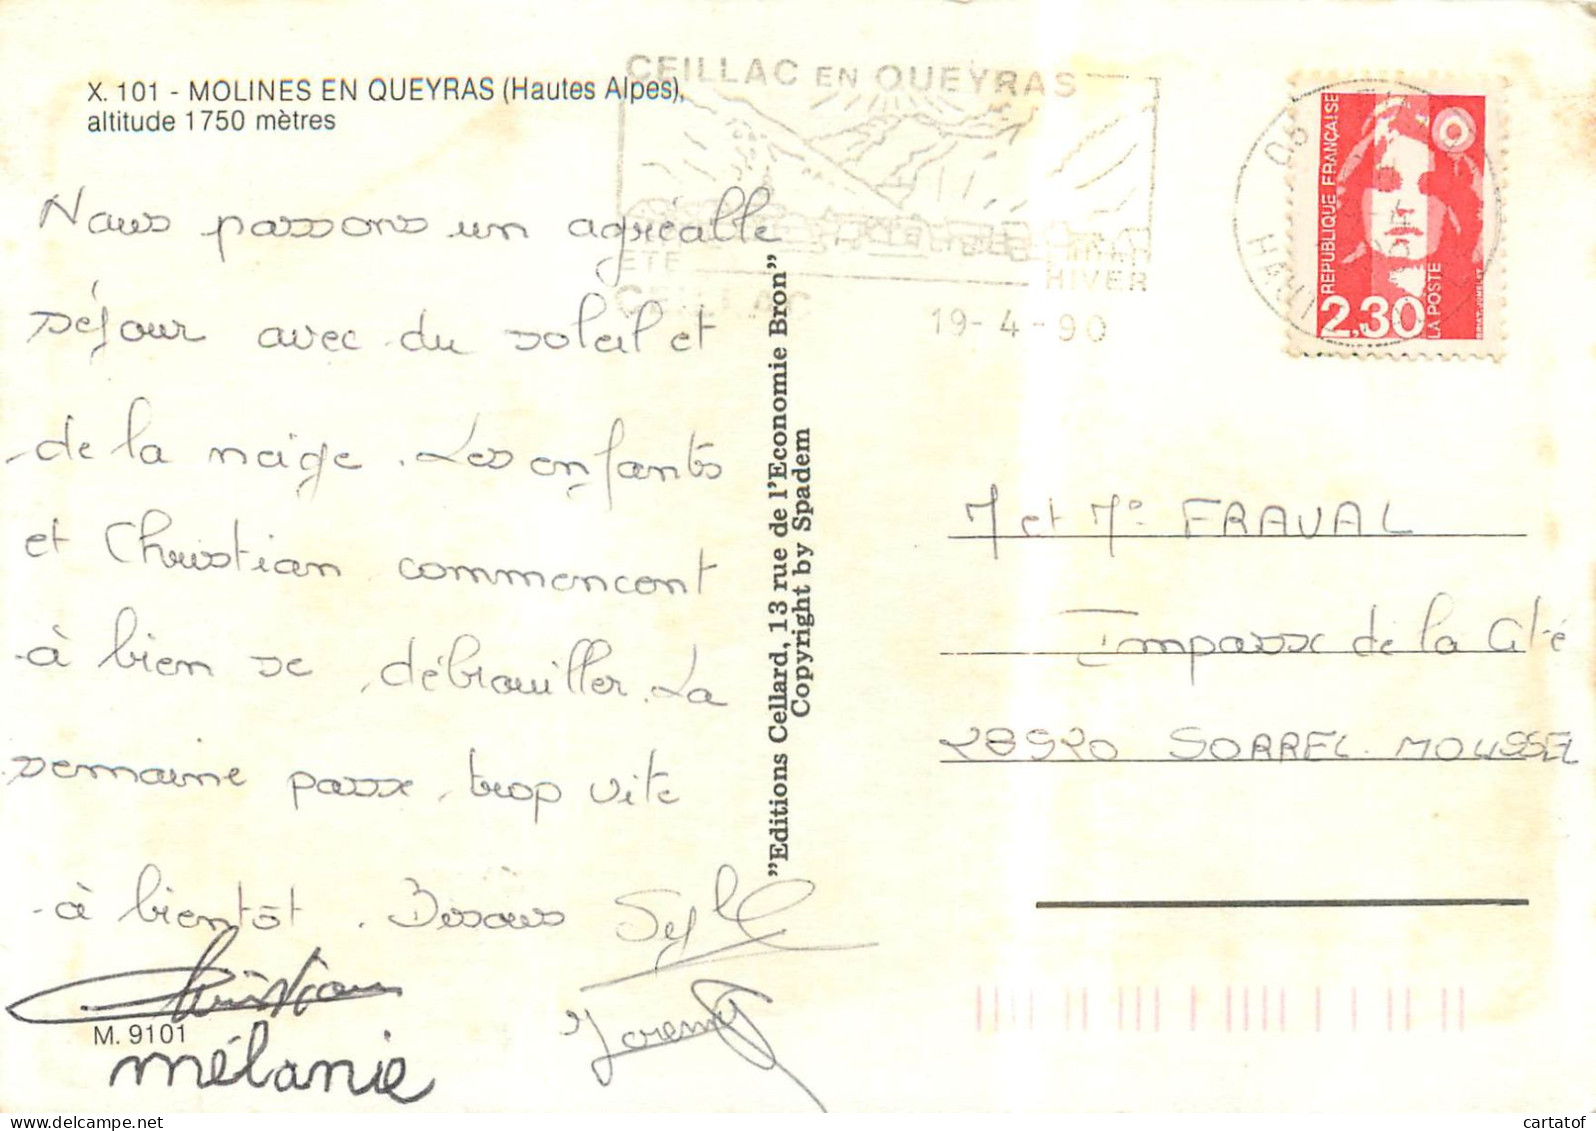 X. 101 - MOLINES EN QUEYRAS (Hautes Alpes),
altitude 1750 mètres
CEILLAC EN QUEYRAS
ETE
HIVER
CEILLAC
19-4-90
05
REPUBLIQUE FRANÇAISE
2,30
LA POSTE
BRIAT-JUMELET
Nous passons un agréable
séjour avec du soleil et
de la neige. Les enfants
et Christian commencent
à bien se débrouiller. La
semaine passe trop vite
à bientôt. Bisous Syl
Christian
Jeremy
M. 9101
mélanie
"Editions Cellard, 13 rue de l'Economie Bron"
Copyright by Spadem
M et Me FRAVAL
Impasse de la Cité
28520 SORREL. MOUSSEL
cartatof